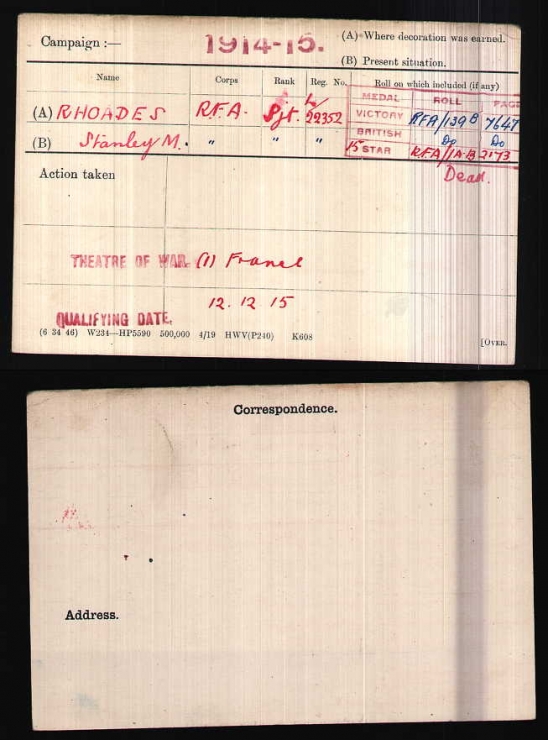 Campaign :—
1914-15.
(A) Where decoration was earned.
(B) Present situation.
Name Corps Rank Reg. No. Roll on which included (if any)
MEDAL ROLL PAGE
(A) RHOADES R.F.A. Sjt. L/22352 VICTORY RFA/139B 7647
BRITISH Do Do
(B) Stanley M. " " " 15 STAR RFA/1A-B 2173
Action taken Dead.
THEATRE OF WAR. (1) France
12.12 15
QUALIFYING DATE.
(6 34 46) W234—HP5590 500,000 4/19 HWV(P240) K608 [OVER.
Correspondence.
Address.